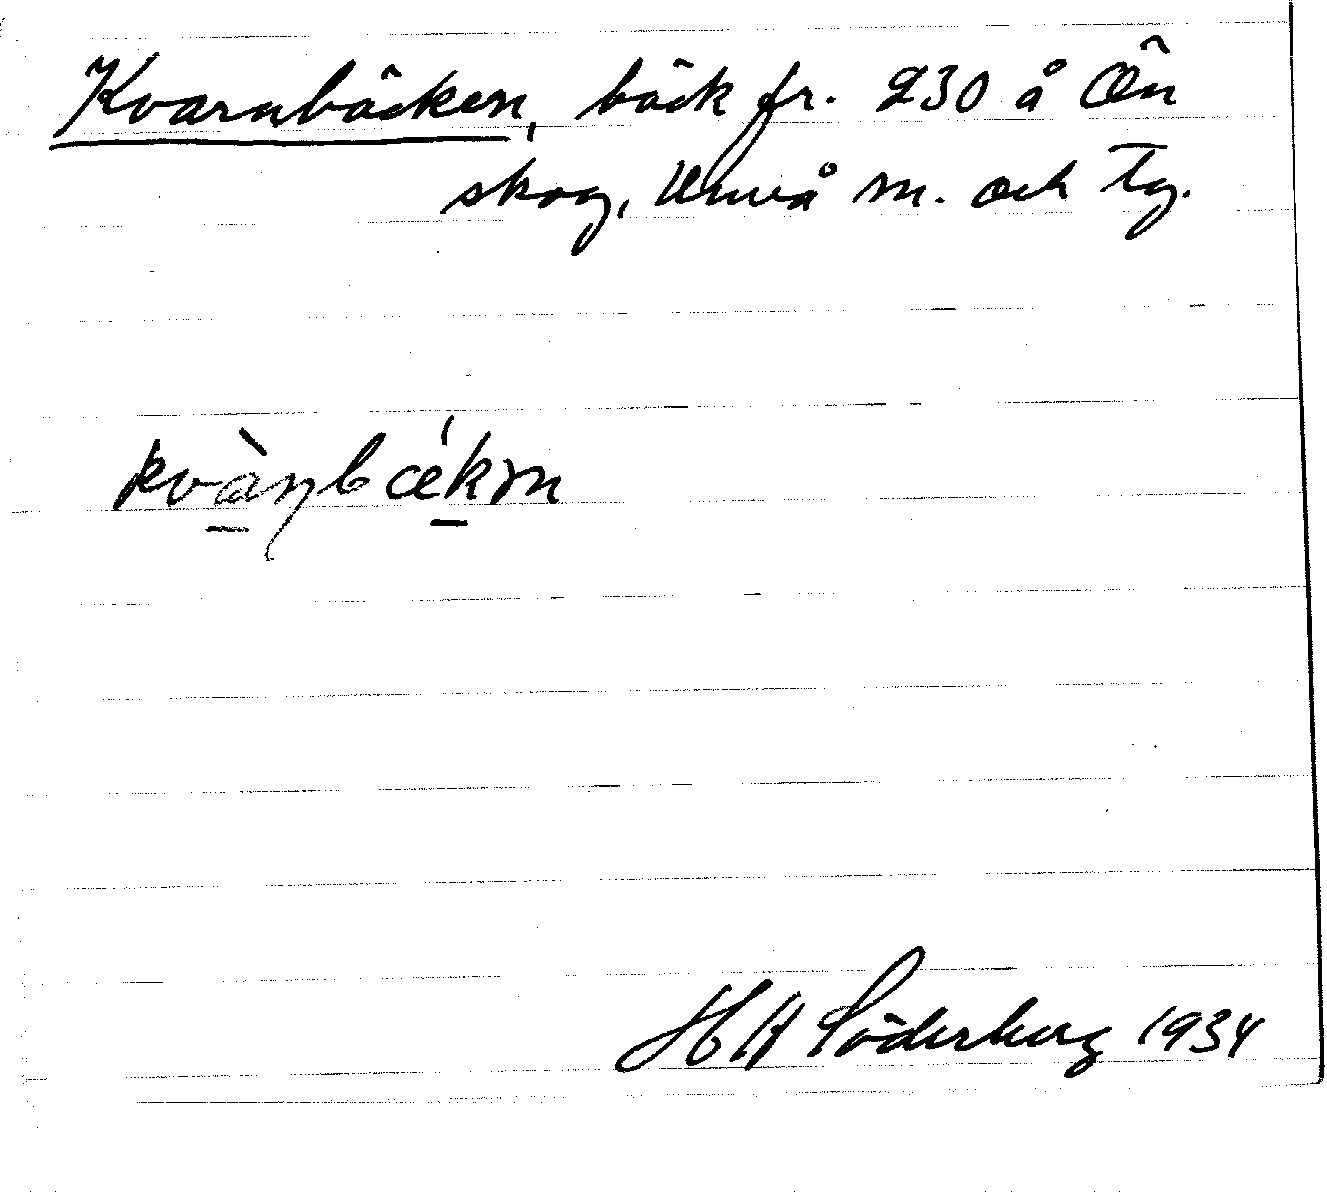 Kvarnbäcken, bäck fr. 230 å Ön
skog, Umeå m. och Tg.
kvànbǽkɱ
H A Söderberg 1934